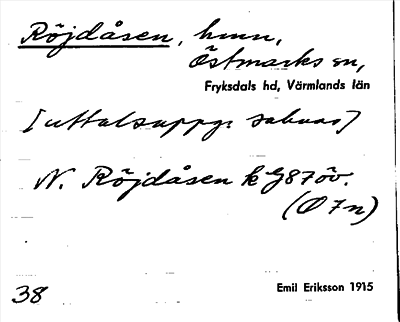 Röjdåsen, hmn,
Östmarks sn,
Fryksdals hd, Värmlands län
[uttalsuppg: saknas]
N. Röjdåsen k G87öv.
(Ö 7n)
38
Emil Eriksson 1915